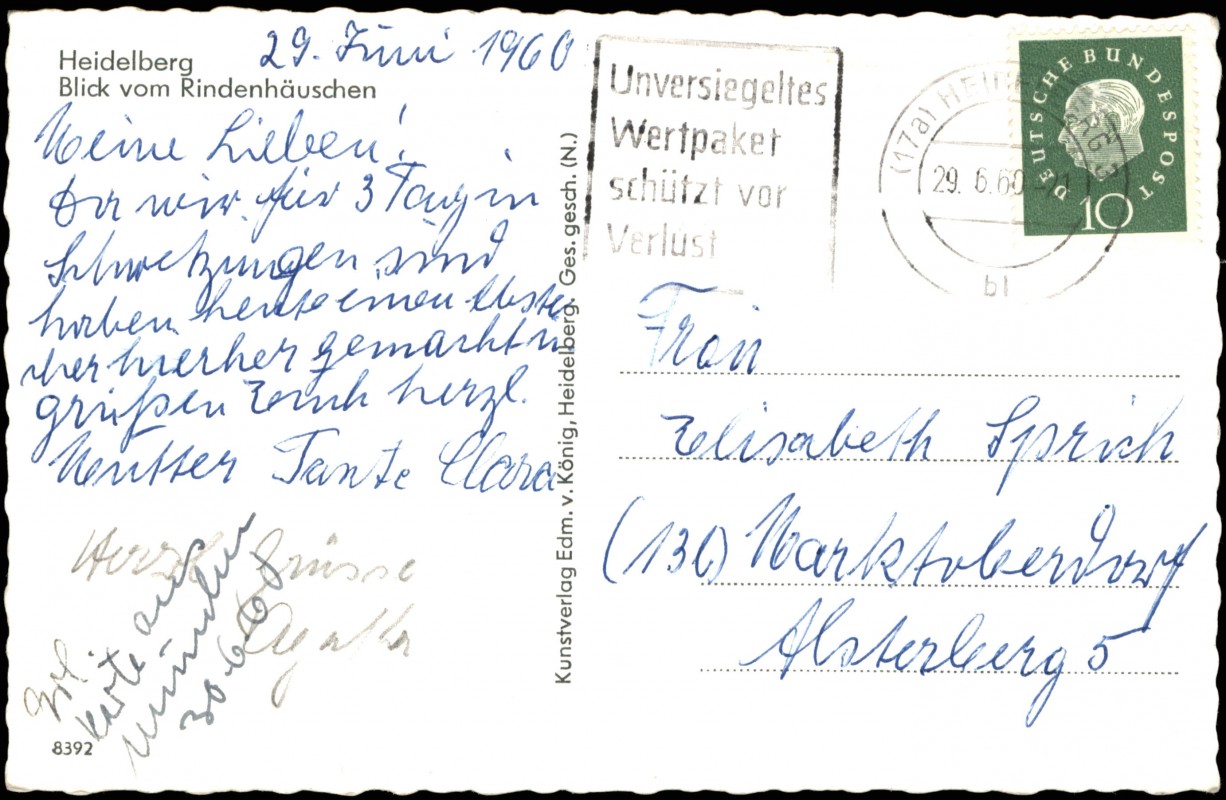 Heidelberg
Blick vom Rindenhäuschen
29. Juni 1960
Meine Lieben!
Da wir für 3 Tage in
Schwetzingen sind
haben heute einen Abste
cher hierher gemacht u.
grüßen Euch herzl.
Mutter Tante Clara
Herzl. Grüsse
Agatha
Karte aus
München
30.6.60
8392
Kunstverlag Edm. v. König, Heidelberg. Ges. gesch. (N.)
Unversiegeltes
Wertpaket
schützt vor
Verlust
(17a) HEIDELBERG
29. 6.60 -21
bl
DEUTSCHE BUNDESPOST
10
Frau
Elisabeth Sprich
(13b) Marktoberdorf
Alsterberg 5